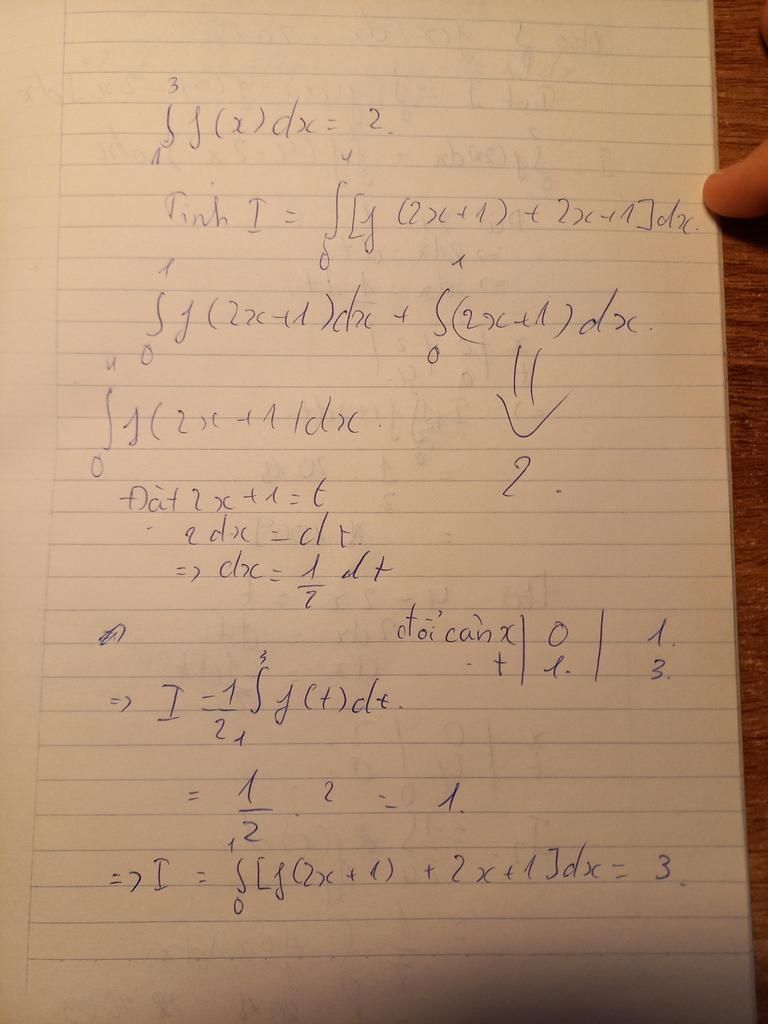 ∫₁³ f(x)dx = 2.
Tính I = ∫₀⁴ [f (2x+1) + 2x+1]dx.
∫₀¹ f(2x+1)dx + ∫₀¹ (2x+1)dx.
∫₀⁴ f(2x+1)dx. ⇓ 2.
Đặt 2x+1 = t
2dx = dt.
=> dx = 1/2 dt
đổi cận x | 0 | 1.
t | 1. | 3.
=> I = 1/2 ∫₁³ f(t)dt.
= 1/2 . 2 = 1.
=> I = ∫₀¹ [f(2x+1) + 2x+1]dx = 3.